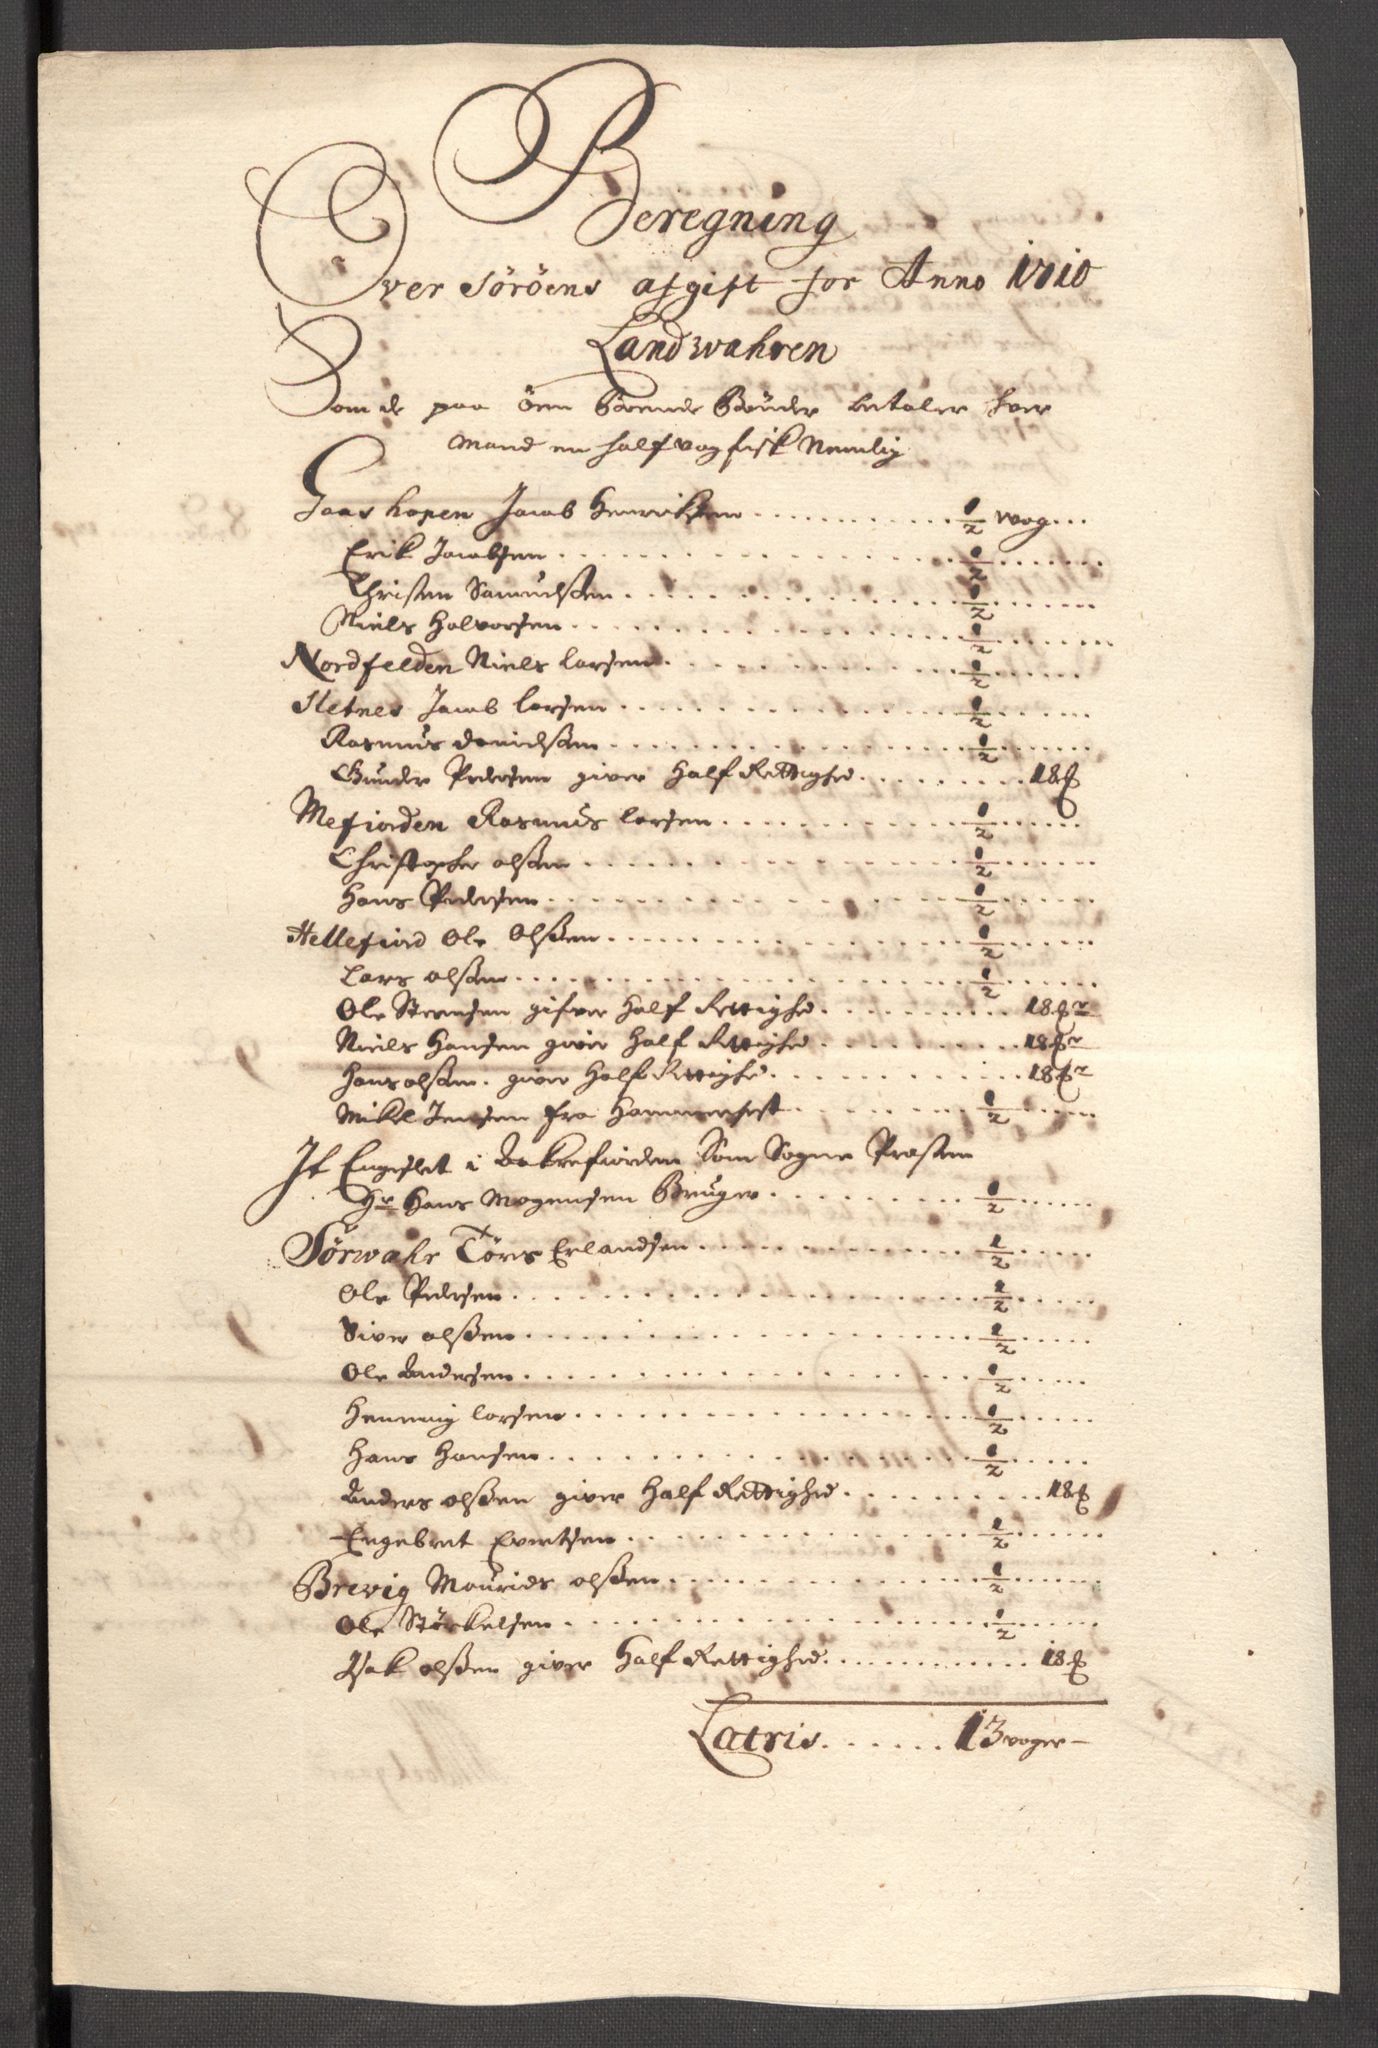 Beregning
Over Söröens afgift for Anno 1710
Landwahren
Som de paa Öen Boende Bønder betaler hver
Mand en half vog fisk Nemlig
Gaashopen Jacob Henriksen ... 1/2 wog ...
Erik Jacobsen ... 1/2 ...
Christen Samuelsen ... 1/2 ...
Niels Halvorsen ... 1/2 ...
Nordfelden Niels Larsen ... 1/2 ...
Sletnes Jacob Larsen ... 1/2 ...
Rasmus Davidsen ... 1/2 ...
Gunder Pedersen giver Half Rettighed ... 18 ß
Mefiorden Rasmus Larsen ... 1/2 ...
Christopher olsen ... 1/2 ...
Hans Pedersen ... 1/2 ...
Hellefiord Ole Olsen ... 1/2 ...
Lars olsen ... 1/2 ...
Ole Steensen gifver Half Rettighed ... 18 ßr
Niels Hansen giver Half Rettighed ... 18 ßr
Hans olsen giver Half Rettighed ... 18 ßr
Mikel Jensen fra Hammerfest ... 1/2 ...
It Engeslet i Bakrefiorden Som Sogne Præsten
Hr Hans Mogensen Bruger ... 1/2 ...
Sörwahr Töris Erlandsen ... 1/2 ...
Ole Pedersen ... 1/2 ...
Siver olsen ... 1/2 ...
Ole Andersen ... 1/2 ...
Henning Larsen ... 1/2 ...
Hans Hansen ... 1/2 ...
Anders olsen giver Half Rettighed ... 18 ß
Engebret Evertsen ... 1/2 ...
Brevig Mourids olsen ... 1/2 ...
Ole Störkelsen ... 1/2 ...
Isak olsen giver Half Rettighed ... 18 ß
Latris ... 13 voger